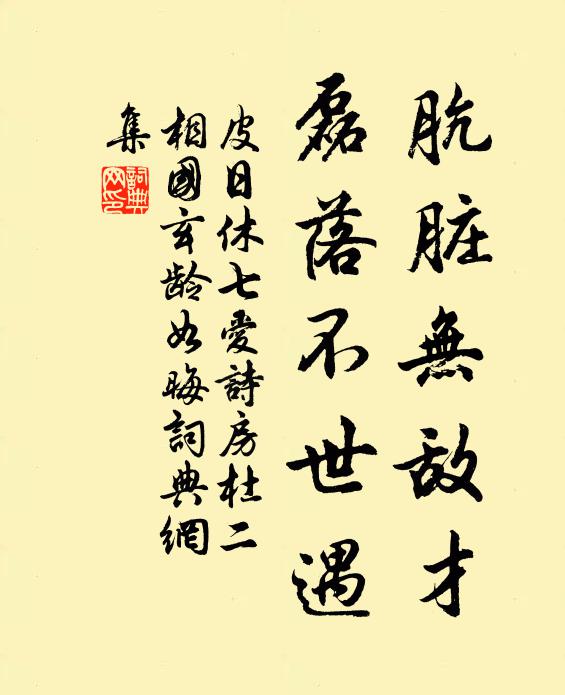 肮脏無敌才
磊落不世遇
皮日休七愛詩房杜二
相國玄龄如晦詞典網
集
詞典
网印